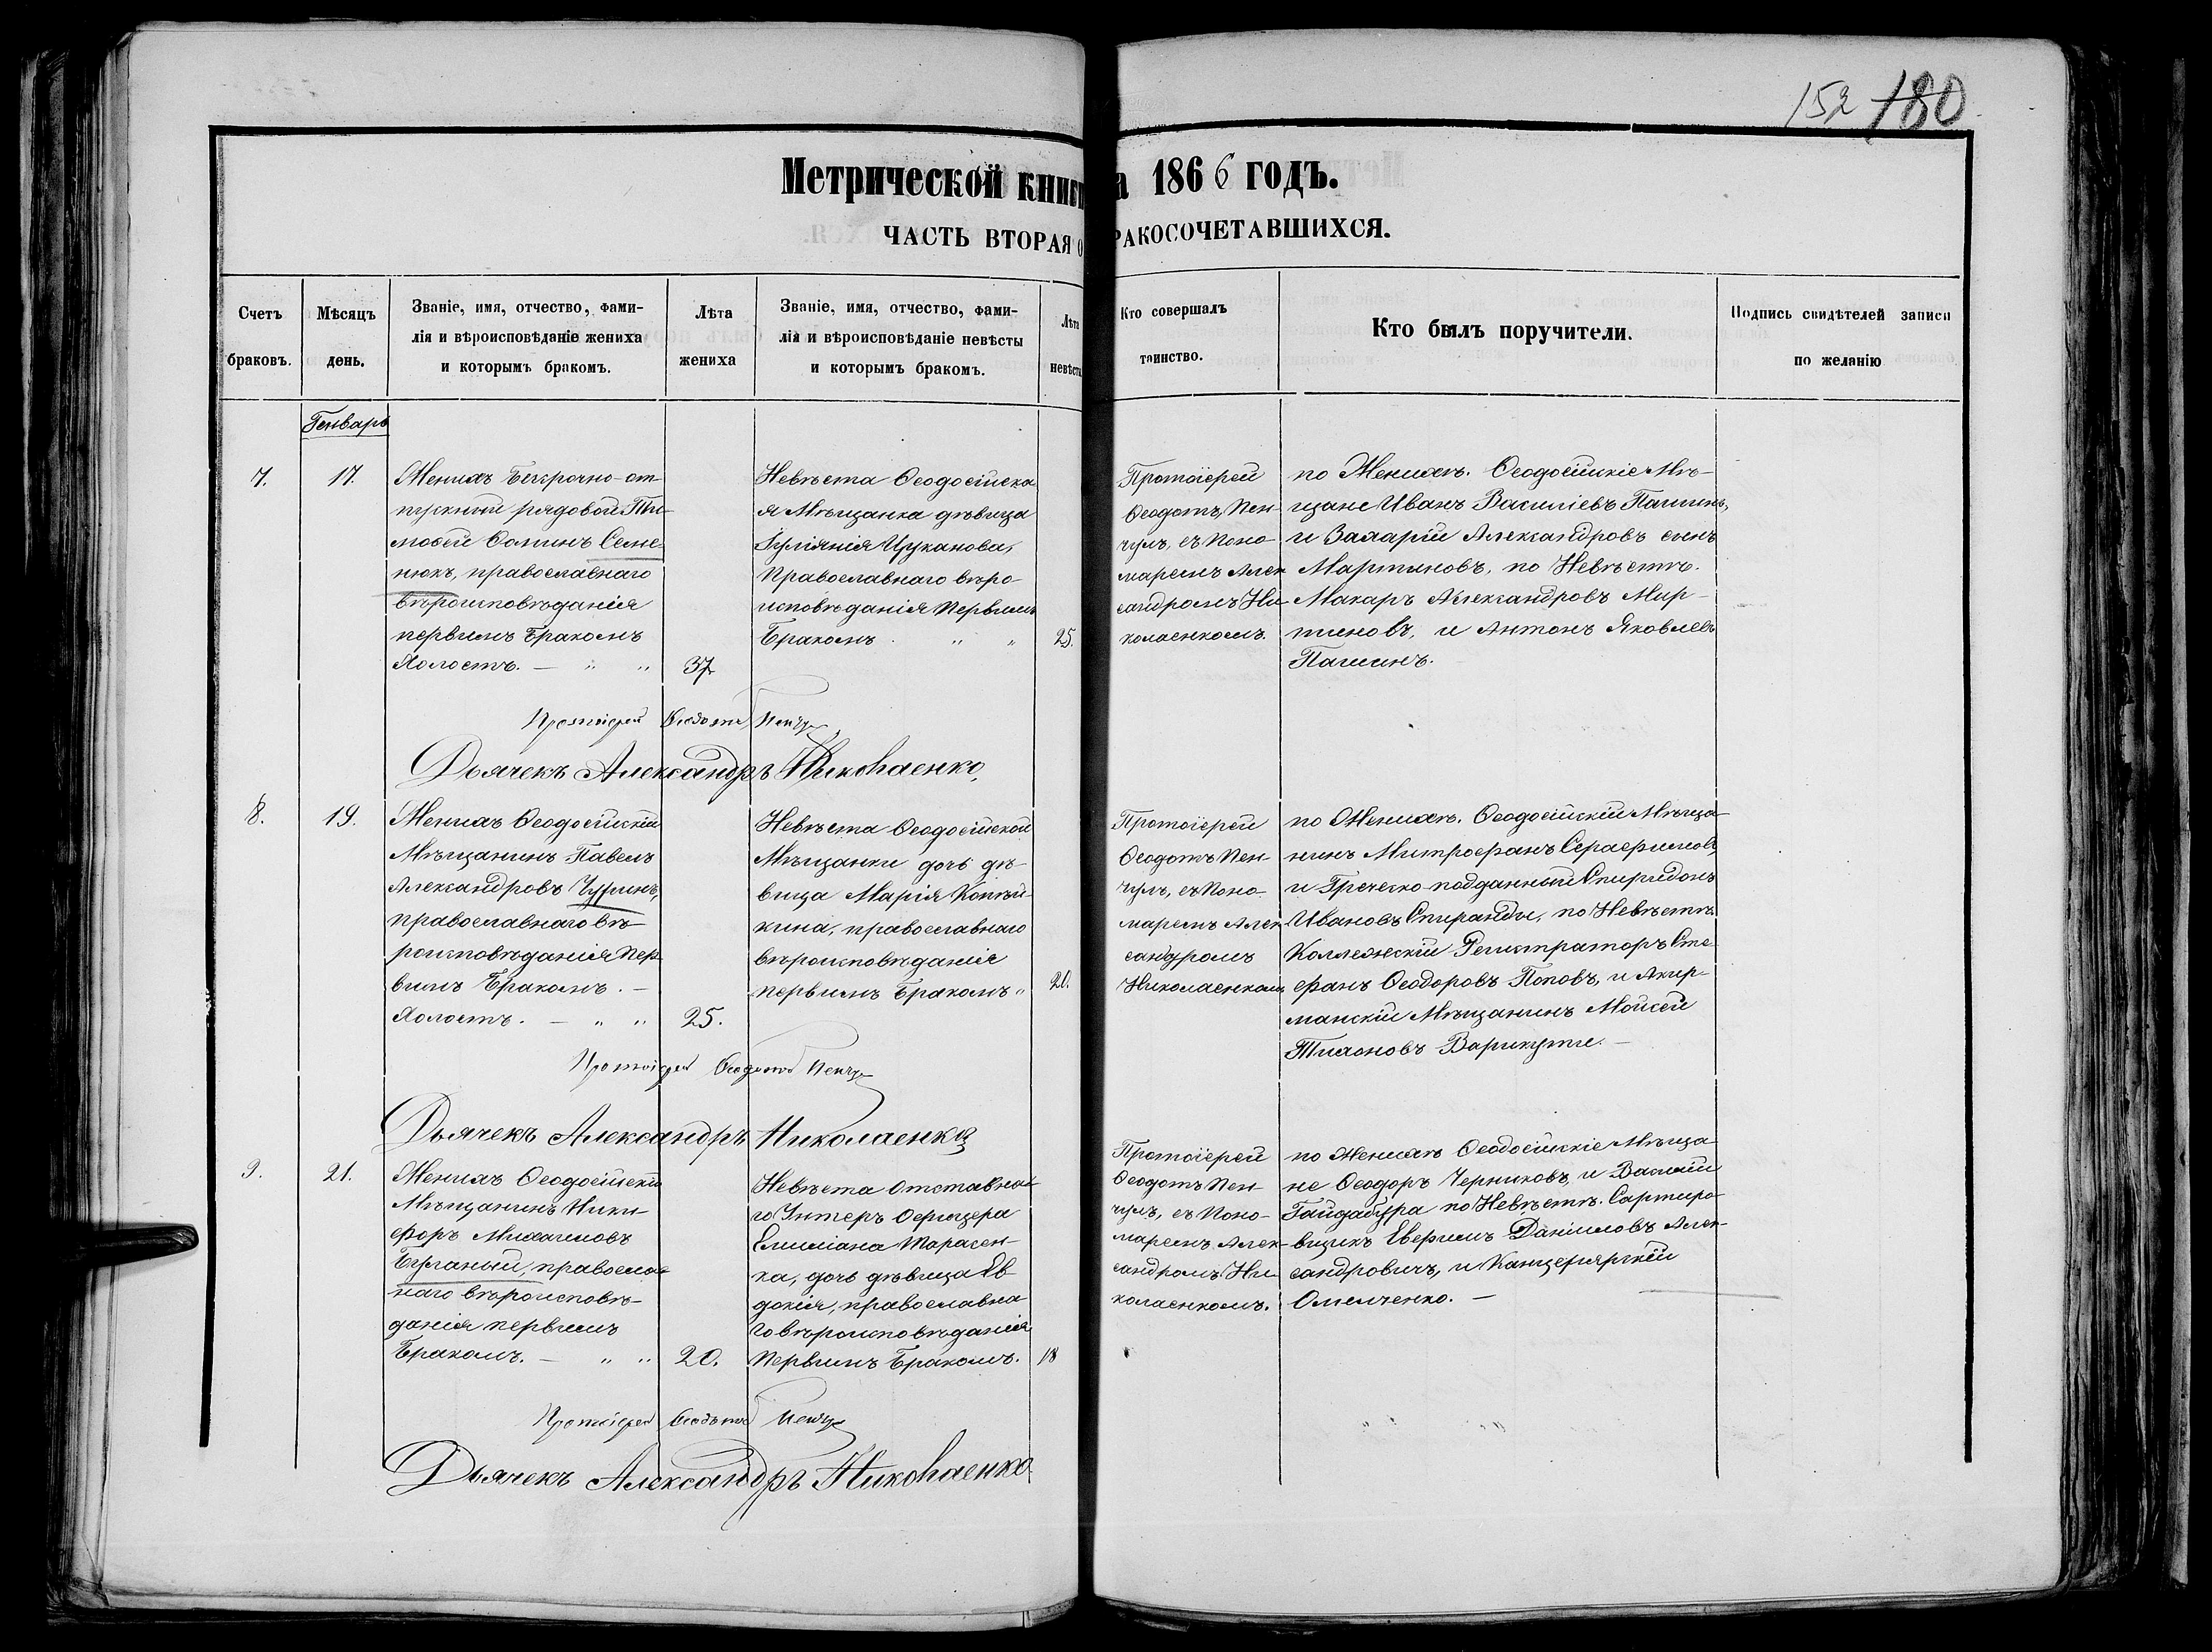 152 180
Метрической книг
а 1866 годъ.
ЧАСТЬ ВТОРАЯ О
РАКОСОЧЕТАВШИХСЯ.
Счетъ браковъ.
Мѣсяцъ день.
Званіе, имя, отчество, фами-
лія и вѣроисповѣданіе жениха
и которымъ бракомъ.
Лѣта жениха
Званіе, имя, отчество, фами-
лія и вѣроисповѣданіе невѣсты
и которымъ бракомъ.
Лѣта невѣсты
Кто совершалъ
таинство.
Кто былъ поручители.
Подпись свидѣтелей записи
по желанію
Генварь
7.
17.
Женихъ Безсрочно-от
пускный рядовой Ти-
мофей Фоминъ Семе-
нюкъ, православнаго
вѣроисповѣданія
первымъ Бракомъ
Холостъ. — " "
37
Невѣста Ѳеодосійска
я Мѣщанка дѣвица
Іуліянія Цуканова,
Православнаго вѣро-
исповѣданія Первымъ
Бракомъ " "
25.
Протоіерей
Ѳеодотъ Пен-
чулъ, съ Поно-
маремъ Алек
сандромъ Ни-
колаенкомъ.
по Женихѣ. Ѳеодосійскіе Мѣ-
щане Иванъ Василіевъ Пашинъ,
и Захарій Александровъ сынъ
Мартыновъ, по Невѣстѣ.
Макаръ Александровъ Мар-
тиновъ, и Антонъ Яковлевъ
Пашинъ.
Протоіерей Ѳеодотъ Пенчулъ
Дьячекъ Александръ Николаенко,
8.
19.
Женихъ Ѳеодосійскій
Мѣщанинъ Павелъ
Александровъ Чуринъ,
православнаго вѣ-
роисповѣданія Пер-
вымъ Бракомъ. —
Холостъ. — " "
25.
Невѣста Ѳеодосійской
Мѣщанки дочь дѣ-
вица Марія Копѣй-
кина, православнаго
вѣроисповѣданія
первымъ Бракомъ "
20.
Протоіерей
Ѳеодотъ Пен-
чулъ, съ Поно-
маремъ Алек
сандромъ
Николаенкомъ
по Женихѣ. Ѳеодосійскій Мѣща-
нинъ Митрофанъ Серафимовъ,
и Греческо-подданный Спиридонъ
Ивановъ Спиранды, по Невѣстѣ.
Коллежскій Регистраторъ Сте-
фанъ Ѳеодоровъ Поповъ, и Акер-
манскій Мѣщанинъ Мойсей
Тихоновъ —
Протоіерей Ѳеодотъ Пенчулъ
Дьячекъ Александръ Николаенко
9.
21.
Женихъ Ѳеодосійскій
Мѣщанинъ Ники-
форъ Михаиловъ
православ
наго вѣроисповѣ-
данія первымъ
Бракомъ. — " "
20.
Невѣста Отставна-
го Унтеръ Офицера
Емиліана Тарасен-
ка, дочь дѣвица Ев
докія, православна
го вѣроисповѣданія
Первымъ Бракомъ.
18
Протоіерей
Ѳеодотъ Пен-
чулъ, съ Поно-
маремъ Алек-
сандромъ Ни-
колаенкомъ.
по Женихѣ Ѳеодосійскіе Мѣща-
не Ѳеодоръ Черниковъ, и Василій
Гайдабура по Невѣстѣ. Сортиро-
вщикъ Даниловъ Алек-
сандровичъ, и Канцелярскій
Омельченко. —
Протоіерей Ѳеодотъ Пенчулъ
Дьячекъ Александръ Николаенко